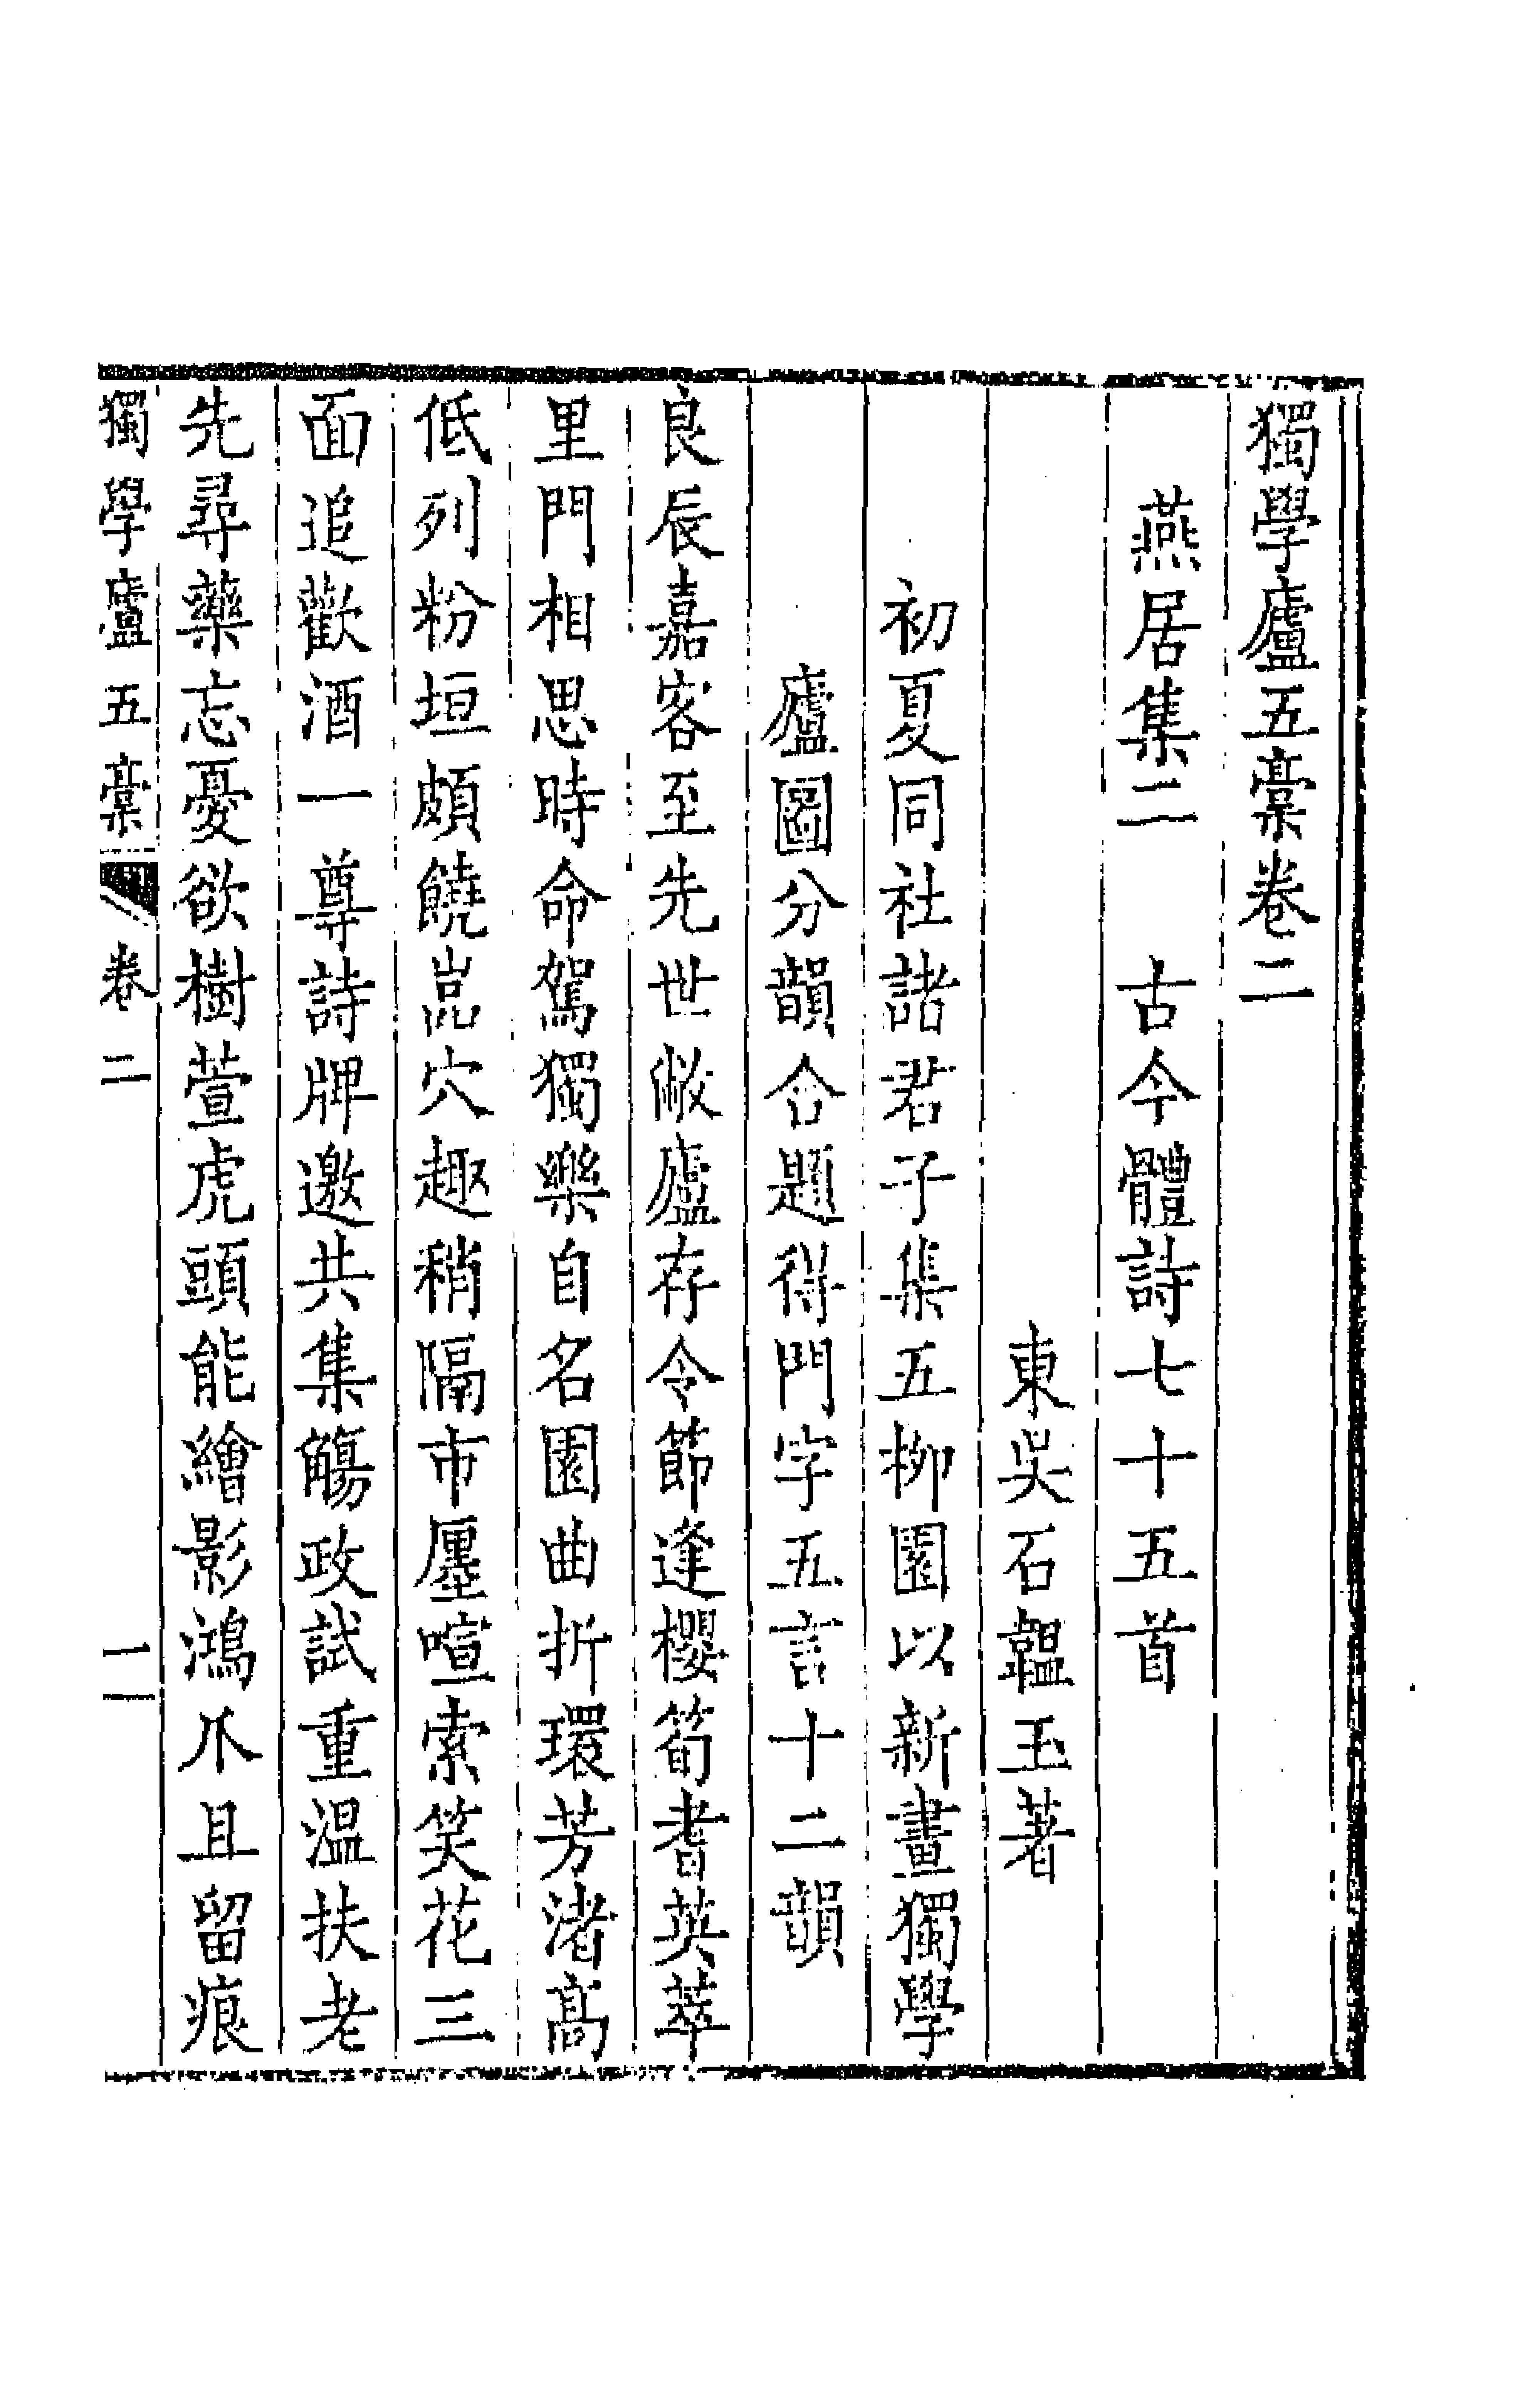 獨學廬五稾卷二
燕居集二　古今體詩七十五首
東吳石韞玉著
初夏同社諸君子集五柳園以新畫獨學
廬圖分韻合題得門字五言十二韻
良辰嘉客至先世敝廬存令節逢櫻筍耆英萃
里門相思時命駕獨樂自名園曲折環芳渚高
低列粉垣頗饒嵓穴趣稍隔市廛喧索笑花三
面追歡酒一尊詩牌邀共集觴政試重溫扶老
先尋藥忘憂欲樹萱虎頭能繪影鴻爪且留痕
獨學廬五稾　卷二　一